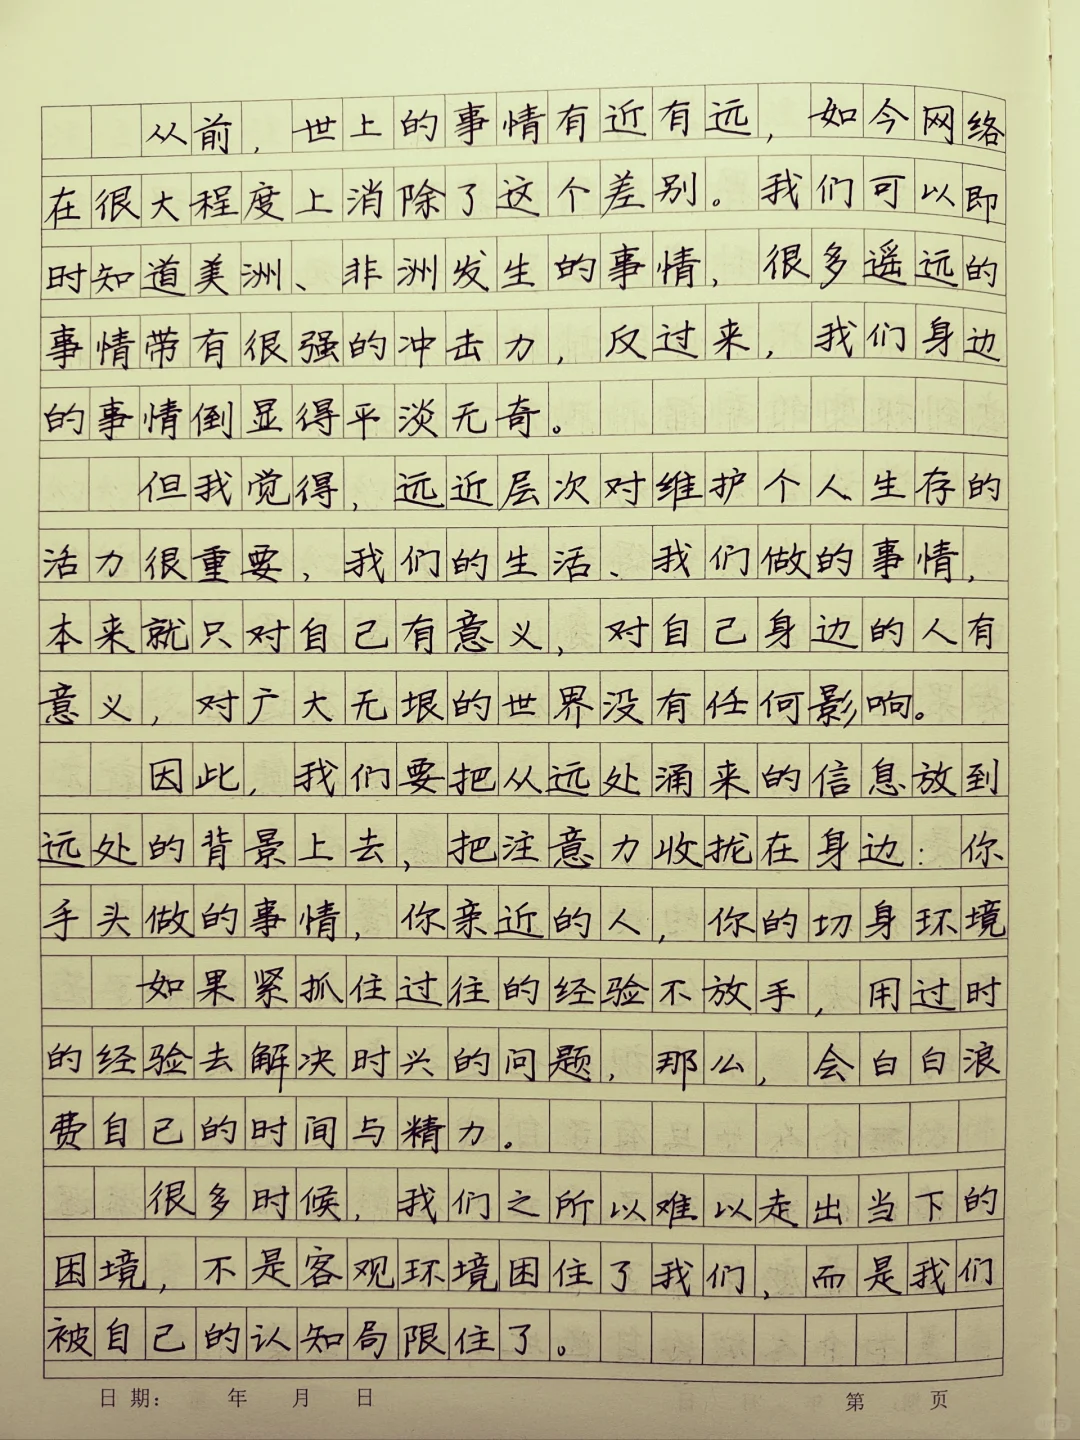 从前，世上的事情有近有远，如今网络
在很大程度上消除了这个差别。我们可以即
时知道美洲、非洲发生的事情，很多遥远的
事情带有很强的冲击力，反过来，我们身边
的事情倒显得平淡无奇。
但我觉得，远近层次对维护个人生存的
活力很重要，我们的生活、我们做的事情，
本来就只对自己有意义，对自己身边的人有
意义，对广大无垠的世界没有任何影响。
因此，我们要把从远处涌来的信息放到
远处的背景上去，把注意力收拢在身边：你
手头做的事情，你亲近的人，你的切身环境
如果紧抓住过往的经验不放手，用过时
的经验去解决时兴的问题，那么，会白白浪
费自己的时间与精力。
很多时候，我们之所以难以走出当下的
困境，不是客观环境困住了我们，而是我们
被自己的认知局限住了。
日期： 年 月 日 第 页